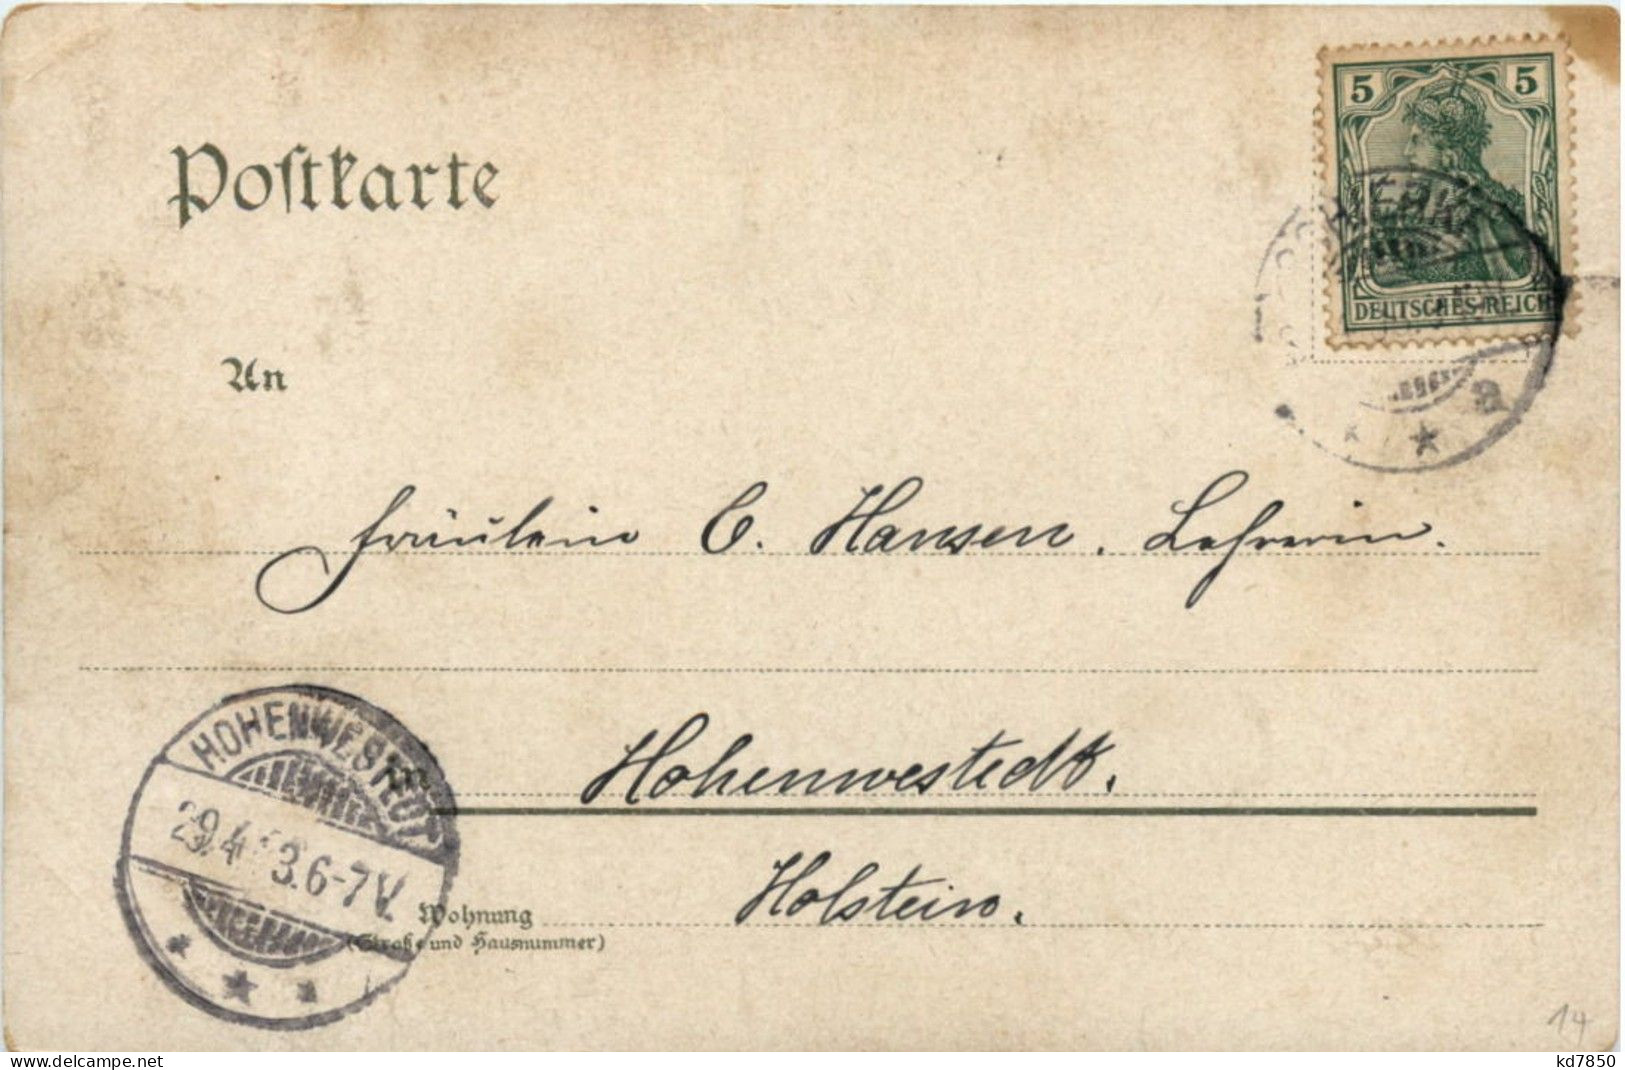 Postkarte
5 5
DEUTSCHES REICH
a
An
Fräulein C. Hansen. Lehrerin.
Hohenwestedt.
HOHENWESTEDT
29.4. 3.6-7V.
a
Holstein.
Wohnung
(Straße und Hausnummer)
14
www.delcampe.net
kd7850